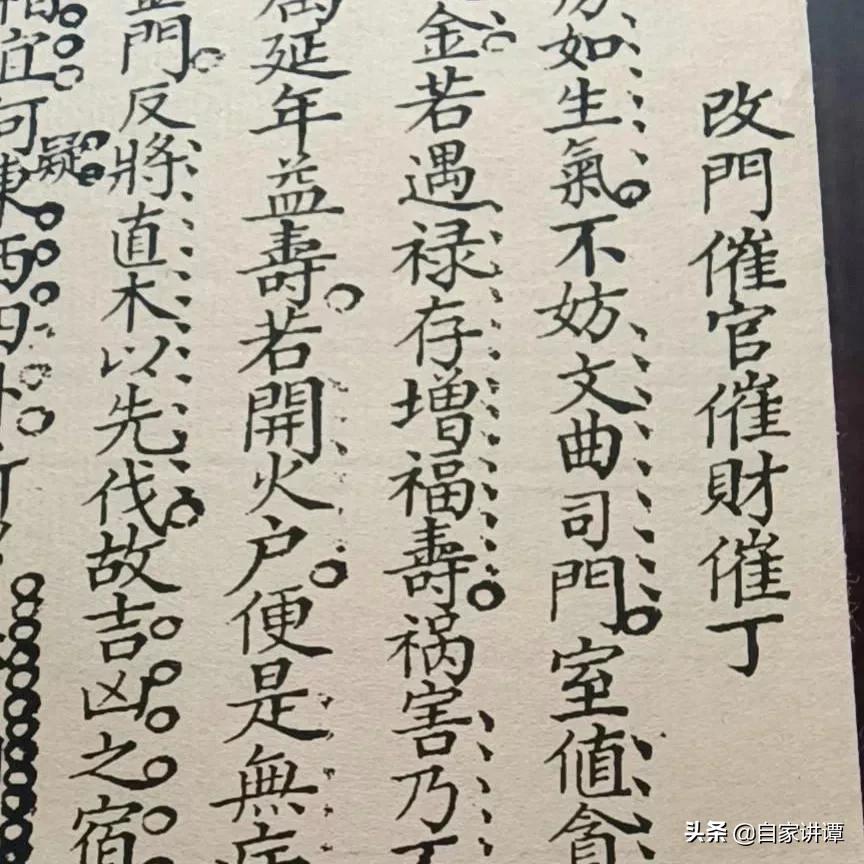 改門催官催財催丁
如生氣。不妨文曲司門。室值貪
金若遇禄存增福壽。祸害乃
延年益壽。若開火户。便是無
門。反將直木以先伐。故吉凶之宿
宜何疑
東西四
头条 @自家讲谭